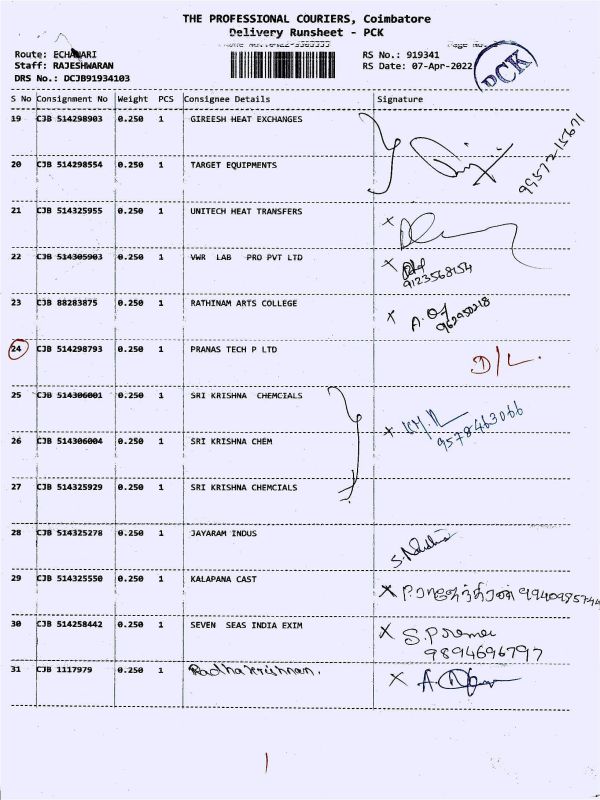 THE PROFESSIONAL COURIERS, Coimbatore
Delivery Runsheet - PCK
Route: ECHANARI
Staff: RAJESHWARAN
DRS No.: DCJB91934103
RS No.: 919341
RS Date: 07-Apr-2022
PCK
S No Consignment No Weight PCS Consignee Details Signature
19 CJB 514298903 0.250 1 GIREESH HEAT EXCHANGES
20 CJB 514298554 0.250 1 TARGET EQUIPMENTS
21 CJB 514325955 0.250 1 UNITECH HEAT TRANSFERS X
22 CJB 514305903 0.250 1 VWR LAB PRO PVT LTD X
9123568154
23 CJB 88283875 0.250 1 RATHINAM ARTS COLLEGE X
24 CJB 514298793 0.250 1 PRANAS TECH P LTD D/L.
25 CJB 514306001 0.250 1 SRI KRISHNA CHEMCIALS X
9578463066
26 CJB 514306004 0.250 1 SRI KRISHNA CHEM
27 CJB 514325929 0.250 1 SRI KRISHNA CHEMCIALS
28 CJB 514325278 0.250 1 JAYARAM INDUS
29 CJB 514325550 0.250 1 KALAPANA CAST X
30 CJB 514258442 0.250 1 SEVEN SEAS INDIA EXIM X S.Prema
9894696797
31 CJB 1117979 0.250 1 Radhakrishnan. X